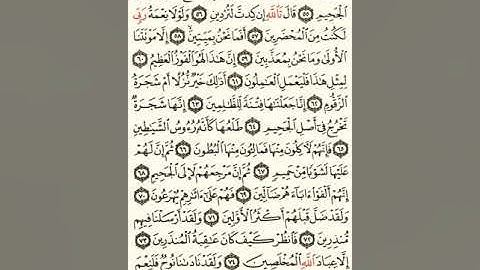 ٱلْجَحِيمِ ٥٥ قَالَ تَٱللَّهِ إِن كِدتَّ لَتُرْدِينِ ٥٦ وَلَوْلَا نِعْمَةُ رَبِّي
لَكُنتُ مِنَ ٱلْمُحْضَرِينَ ٥٧ أَفَمَا نَحْنُ بِمَيِّتِينَ ٥٨ إِلَّا مَوْتَتَنَا
ٱلْأُولَىٰ وَمَا نَحْنُ بِمُعَذَّبِينَ ٥٩ إِنَّ هَٰذَا لَهُوَ ٱلْفَوْزُ ٱلْعَظِيمُ ٦٠
لِمِثْلِ هَٰذَا فَلْيَعْمَلِ ٱلْعَٰمِلُونَ ٦١ أَذَٰلِكَ خَيْرٌ نُّزُلًا أَمْ شَجَرَةُ
ٱلزَّقُّومِ ٦٢ إِنَّا جَعَلْنَٰهَا فِتْنَةً لِّلظَّٰلِمِينَ ٦٣ إِنَّهَا شَجَرَةٌ
تَخْرُجُ فِيٓ أَصْلِ ٱلْجَحِيمِ ٦٤ طَلْعُهَا كَأَنَّهُۥ رُءُوسُ ٱلشَّيَٰطِينِ
٦٥ فَإِنَّهُمْ لَأٓكِلُونَ مِنْهَا فَمَالِـُٔونَ مِنْهَا ٱلْبُطُونَ ٦٦ ثُمَّ إِنَّ لَهُمْ
عَلَيْهَا لَشَوْبًا مِّنْ حَمِيمٍ ٦٧ ثُمَّ إِنَّ مَرْجِعَهُمْ لَإِلَى ٱلْجَحِيمِ ٦٨
إِنَّهُمْ أَلْفَوْا۟ ءَابَآءَهُمْ ضَآلِّينَ ٦٩ فَهُمْ عَلَىٰٓ ءَاثَٰرِهِمْ يُهْرَعُونَ ٧٠
وَلَقَدْ ضَلَّ قَبْلَهُمْ أَكْثَرُ ٱلْأَوَّلِينَ ٧١ وَلَقَدْ أَرْسَلْنَا فِيهِم
مُّنذِرِينَ ٧٢ فَٱنظُرْ كَيْفَ كَانَ عَٰقِبَةُ ٱلْمُنذَرِينَ ٧٣
إِلَّا عِبَادَ ٱللَّهِ ٱلْمُخْلَصِينَ ٧٤ وَلَقَدْ نَادَىٰنَا نُوحٌ فَلَنِعْمَ